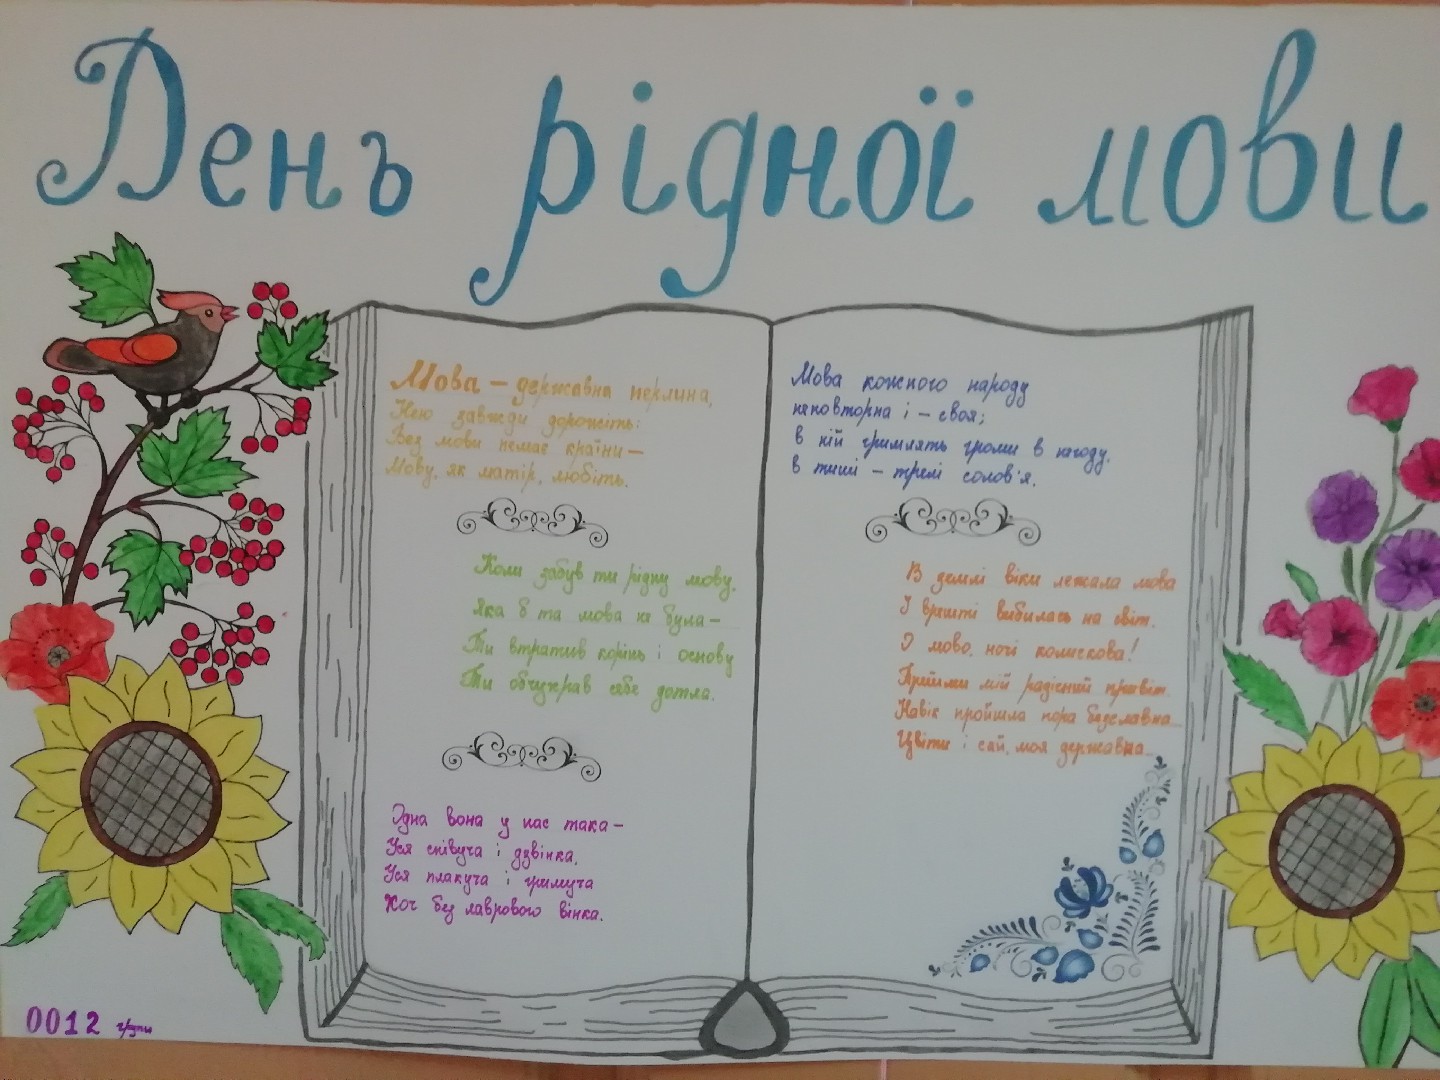 День рідної мови
Мова – державна перлина,
Нею завжди дорожіть:
Без мови немає країни –
Мову, як матір, любіть.
Коли забув ти рідну мову,
Яка б та мова не була –
Ти втратив корінь і основу
Ти обчухрав себе дотла.
Одна вона у нас така –
Уся співуча і дзвінка,
Уся плакуча і гримуча
Хоч без лаврового вінка.
Мова кожного народу
неповторна і – своя;
в ній гримлять громи в негоду,
в тиші – трелі солов'я.
В землі віки лежала мова
І врешті вибилась на світ.
О мово, ночі колискова!
Прийми мій радісний привіт.
Навік пройшла пора безславна...
Цвіти і сяй, моя державна...
0012 групи